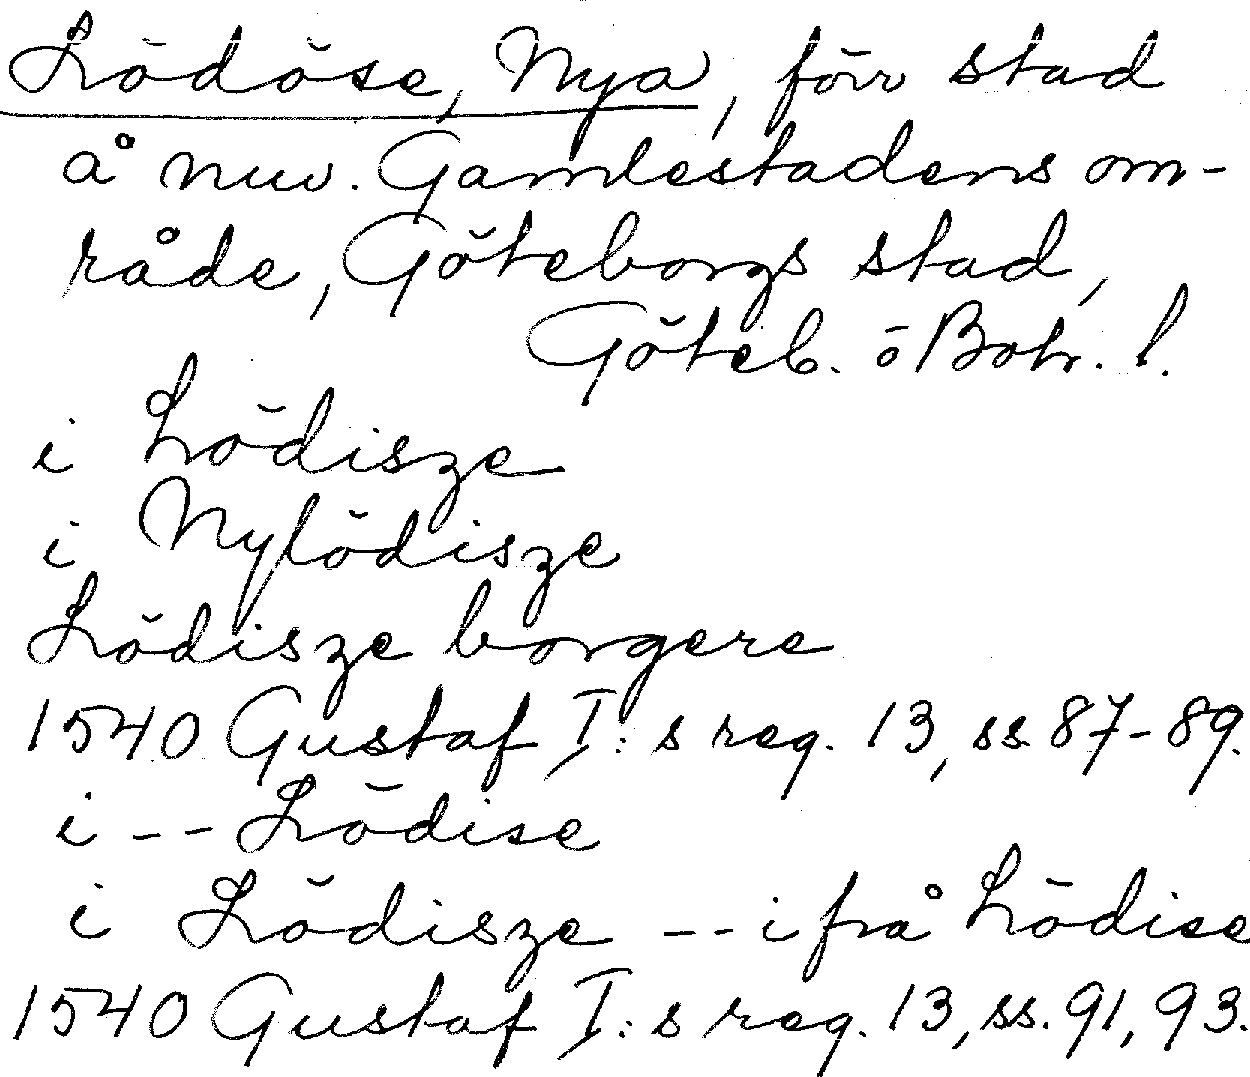 Lödöse, Nya, förr stad
å nuv. Gamlestadens om-
råde, Göteborgs stad,
Göteb. o Boh. l.
i Lödisze
i Nylödisze
Lödisze borgere
1540 Gustaf I:s reg. 13, ss 87-89.
i -- Lödise
i Lödisze -- ifrå Lödise
1540 Gustaf I:s reg. 13, ss. 91, 93.